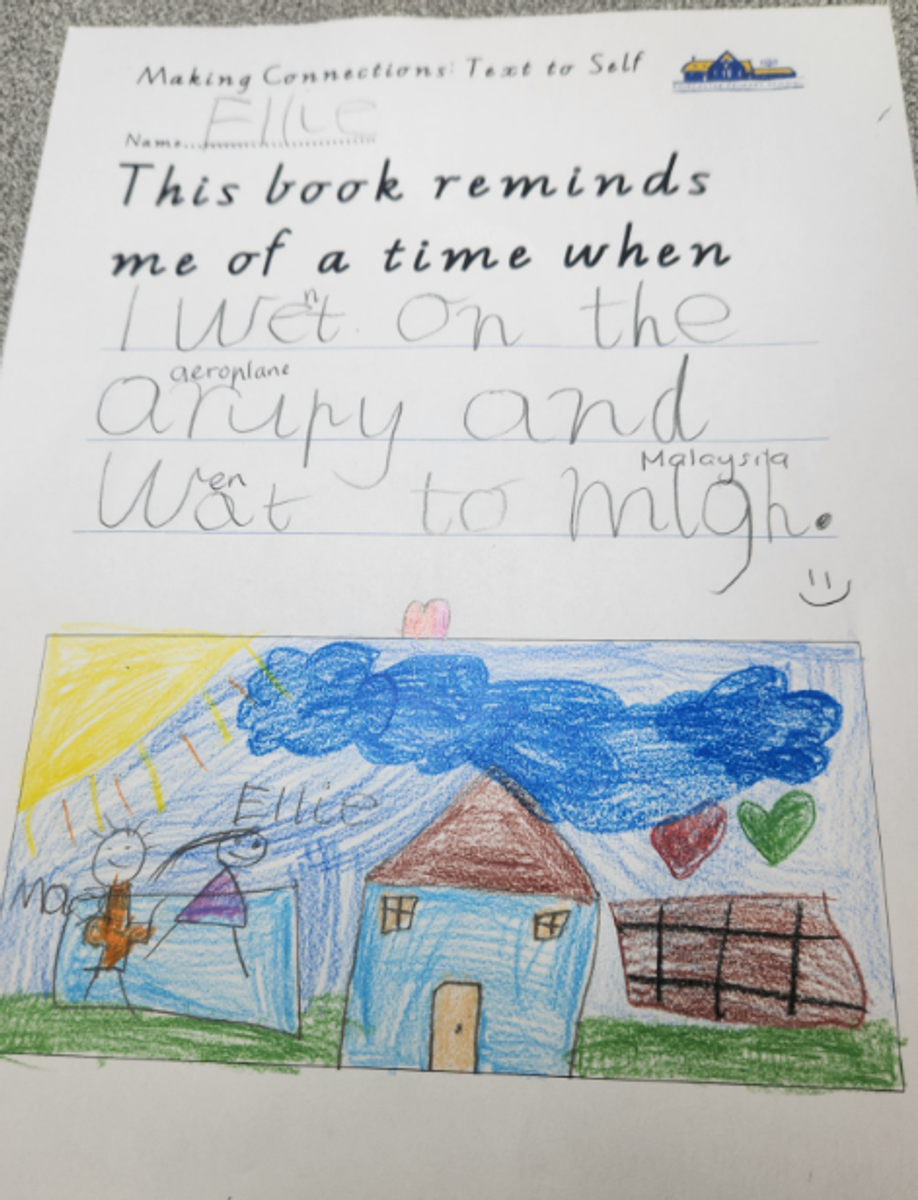 Making Connections: Text to Self
Name Ellie
This book reminds
me of a time when
n
I wet on the
aeroplane
arupy and
en Malaysia
Wat to mlgh.
Ellie